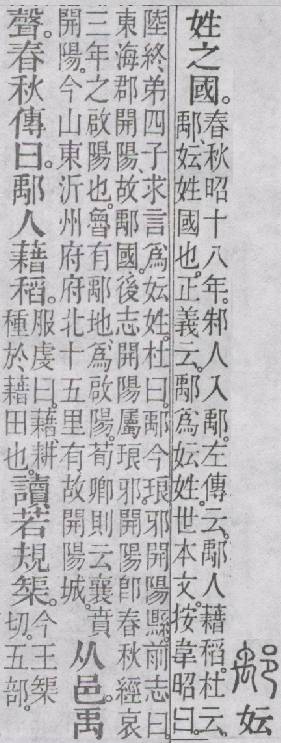 鄅
妘
姓之國。
春秋昭十八年。邾人入鄅。左傳云。鄅人藉稻。杜云。
鄅、妘姓國也。正義云。鄅爲妘姓。世本文。按韋昭曰。
陸終弟四子求言爲妘姓。杜曰。鄅今琅邪開陽縣。前志曰。
東海郡開陽、故鄅國。後志開陽屬琅邪開陽卽春秋經哀
三年之啟陽也。魯有鄅地爲啟陽。荀卿則云襄賁
開陽。今山東沂州府府北十五里有故開陽城。
从邑。禹
聲。春秋傳曰。鄅人藉稻。
服虔曰。藉、耕
種於藉田也。
讀若規榘。
今王榘
切。五部。